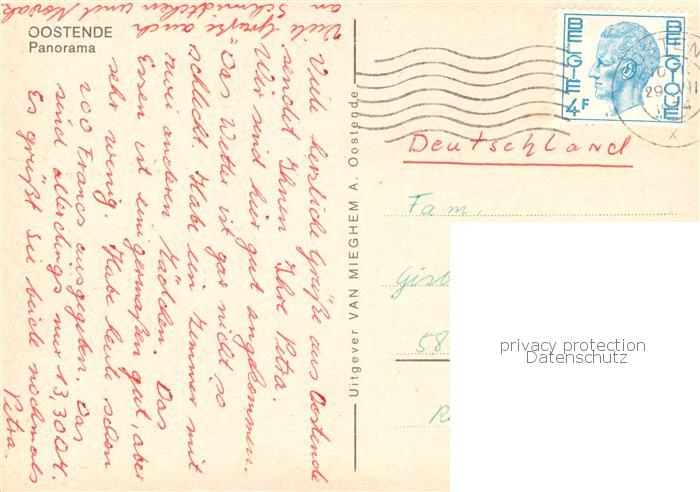 OOSTENDE
Panorama
Viele herzliche Grüße aus Oostende
sendet Ihnen Ihre Petra.
Wir sind hier gut angekommen.
Das Wetter ist gar nicht so
schlecht. Habe ein Zimmer mit
zwei anderen Mädchen. Das
Essen ist einigermaßen gut, aber
sehr wenig. Habe heute schon
200 Francs ausgegeben. Das
sind allerdings nur 13,30 DM.
Es grüßt sie beide nochmals
Petra.
Viele Grüße auch
an Schmidtchen und Novak.
Uitgever VAN MIEGHEM A. Oostende
BELGIE BELGIQUE
4F
Deutschland
Fam.
58
privacy protection
Datenschutz